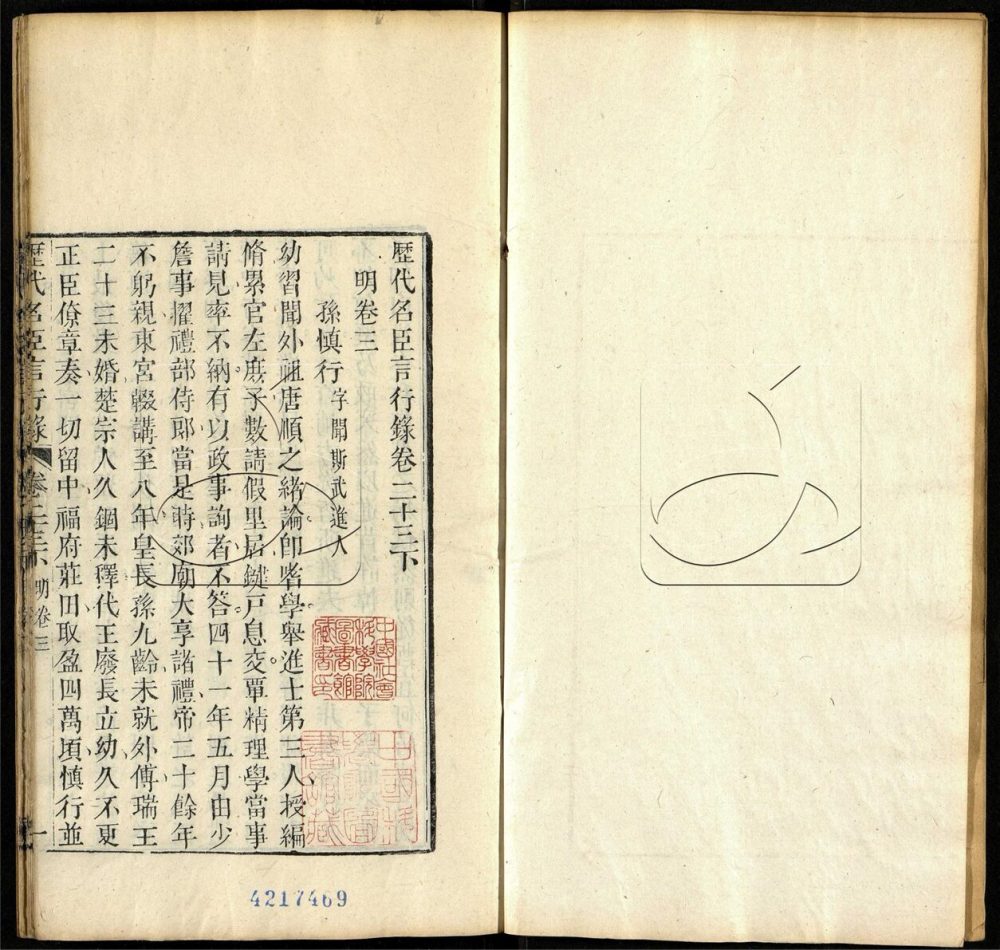 歷代名臣言行錄卷二十三下
明卷三
孫慎行字聞斯武進人
幼習聞外祖唐順之緒論卽嗜學舉進士第三人授編
脩累官左庶子數請假里居鍵戸息交覃精理學當事
請見率不納有以政事詢者不答四十一年五月由少
詹事擢禮部侍郎當是時郊廟大享諸禮帝二十餘年
不躬親東宮輟講至八年皇長孫九齡未就外傅瑞王
二十三未婚楚宗人久錮未釋代王廢長立幼久不更
正臣僚章奏一切留中福府莊田取盈四萬頃慎行並
歷代名臣言行錄 卷二十三下 明卷三 一
中國社會科學院圖書館藏書印
4217469